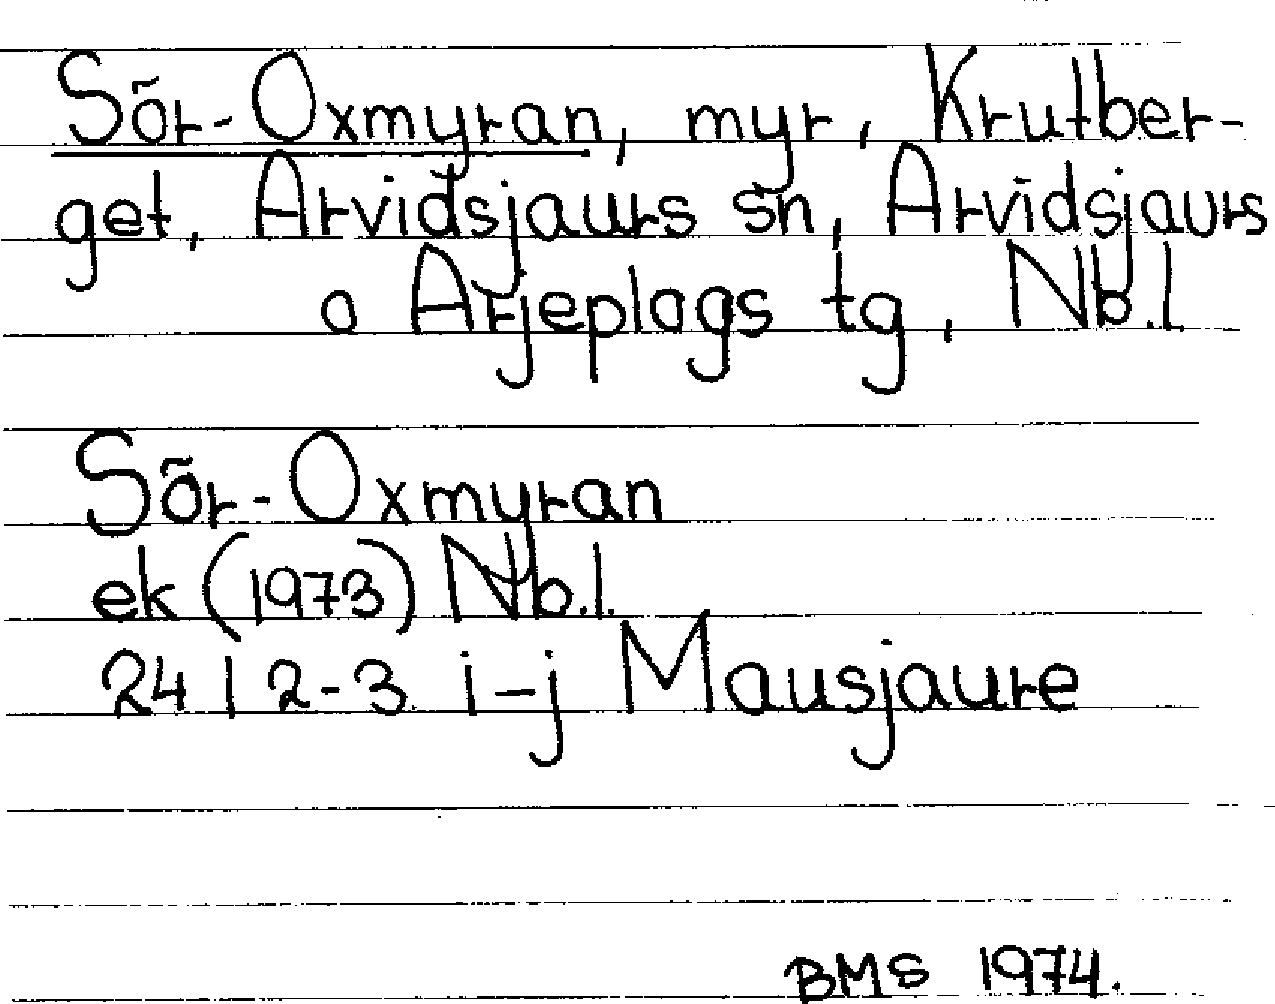 Sör-Oxmyran, myr, Krutber-
get, Arvidsjaurs sn, Arvidsjaurs
o Arjeplogs tg, Nb.l.
Sör-Oxmyran
ek (1973) Nb.l.
24 I 2-3 i-j Mausjaure
BMS 1974.